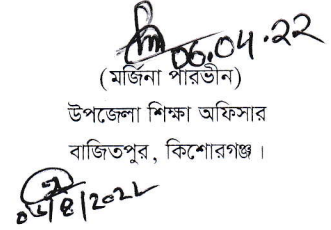 06.04.22
(মর্জিনা পারভীন)
উপজেলা শিক্ষা অফিসার
বাজিতপুর, কিশোরগঞ্জ।